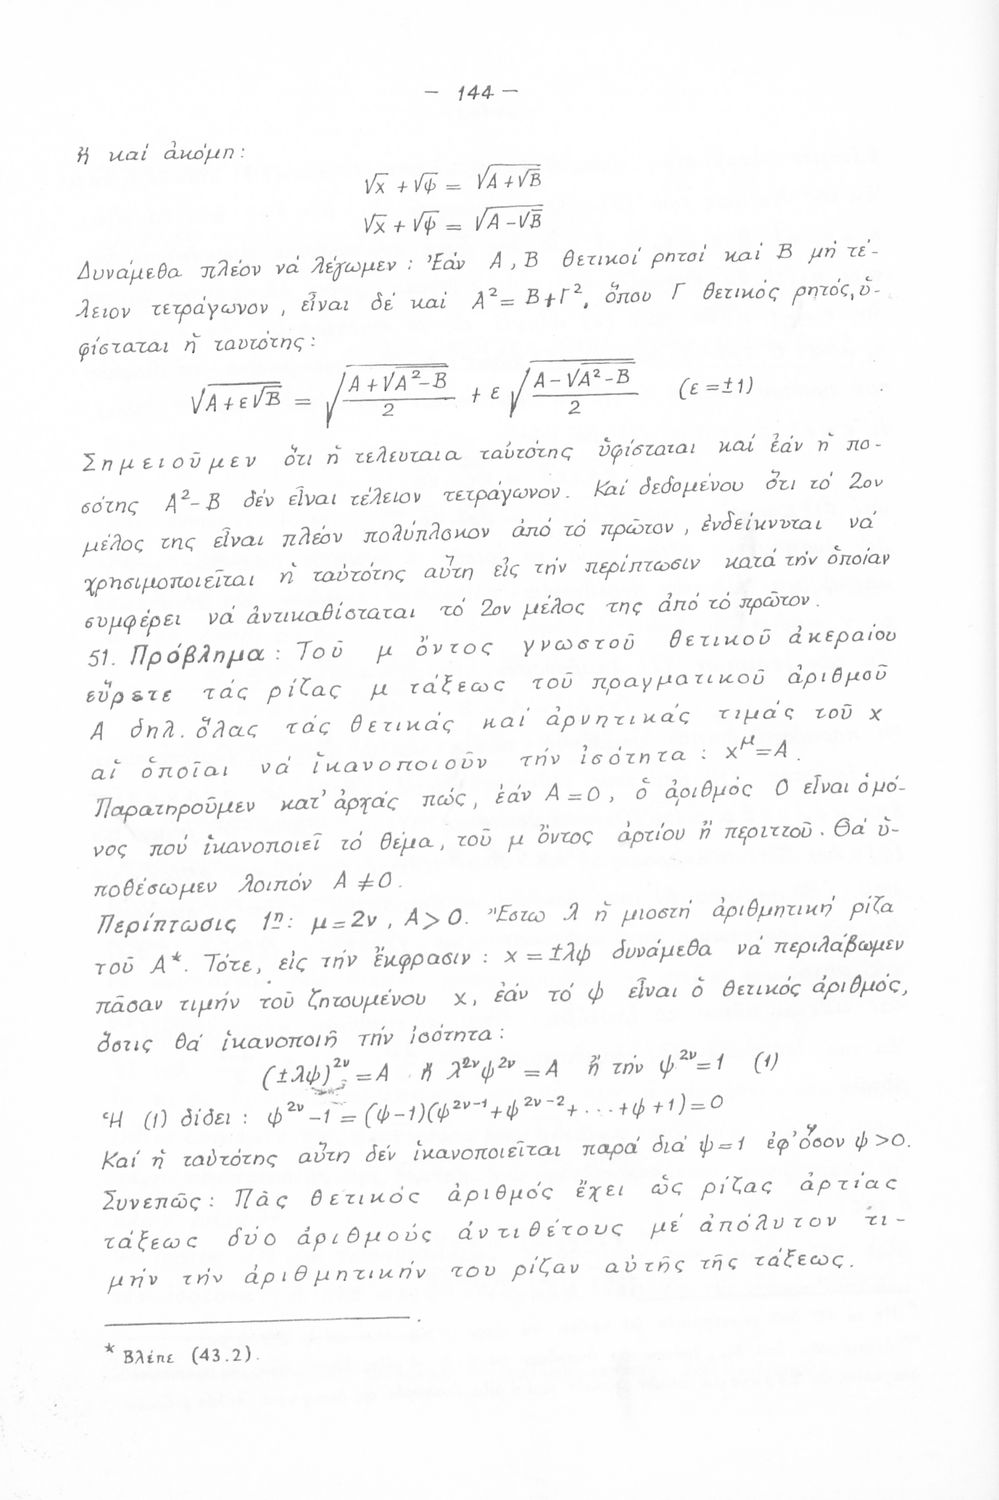 - 144 -
ἤ καί ἀκόμη:
√x + √ψ = √(A + √B)
√x + √ψ = √(A - √B)
Δυνάμεθα πλέον νά λέγωμεν : Ἐάν A, B θετικοί ρητοί καί B μή τέ-
λειον τετράγωνον, εἶναι δέ καί A² = B + Γ², ὅπου Γ θετικός ρητός, ὑ-
φίσταται ἡ ταυτότης:
√(A + ε√B) = √((A + √(A² - B))/2) + ε √((A - √(A² - B))/2) (ε = ±1)
Σημειοῦμεν ὅτι ἡ τελευταία ταὐτότης ὑφίσταται καί ἐάν ἡ πο-
σότης A² - B δέν εἶναι τέλειον τετράγωνον. Καί δεδομένου ὅτι τό 2ον
μέλος της εἶναι πλέον πολύπλοκον ἀπό τό πρῶτον, ἐνδείκνυται νά
χρησιμοποιεῖται ἡ ταὐτότης αὕτη εἰς τήν περίπτωσιν κατά τήν ὁποίαν
συμφέρει νά ἀντικαθίσταται τό 2ον μέλος της ἀπό τό πρῶτον.
51. Πρόβλημα: Τοῦ μ ὄντος γνωστοῦ θετικοῦ ἀκεραίου
εὕρετε τάς ρίζας μ τάξεως τοῦ πραγματικοῦ ἀριθμοῦ
A δηλ. ὅλας τάς θετικάς καί ἀρνητικάς τιμάς τοῦ x
αἱ ὁποῖαι νά ἱκανοποιοῦν τήν ἰσότητα : x^μ = A.
Παρατηροῦμεν κατ' ἀρχάς πώς, ἐάν A = 0, ὁ ἀριθμός 0 εἶναι ὁ μό-
νος πού ἱκανοποιεῖ τό θέμα, τοῦ μ ὄντος ἀρτίου ἤ περιττοῦ. Θά ὑ-
ποθέσωμεν λοιπόν A ≠ 0.
Περίπτωσις 1η: μ = 2ν, A > 0. Ἔστω λ ἡ μιοστή ἀριθμητική ρίζα
τοῦ A*. Τότε, εἰς τήν ἔκφρασιν : x = ±λψ δυνάμεθα νά περιλάβωμεν
πᾶσαν τιμήν τοῦ ζητουμένου x, ἐάν τό ψ εἶναι ὁ θετικός ἀριθμός,
ὅστις θά ἱκανοποιῇ τήν ἰσότητα:
(±λψ)^2ν = A ἤ λ^2ν ψ^2ν = A ἤ τήν ψ^2ν = 1 (1)
Ἡ (1) δίδει : ψ^2ν - 1 = (ψ-1)(ψ^2ν-1 + ψ^2ν-2 + ... + ψ + 1) = 0
Καί ἡ ταὐτότης αὕτη δέν ἱκανοποιεῖται παρά διά ψ = 1 ἐφ' ὅσον ψ > 0.
Συνεπῶς: Πᾶς θετικός ἀριθμός ἔχει ὡς ρίζας ἀρτίας
τάξεως δύο ἀριθμούς ἀντιθέτους μέ ἀπόλυτον τι-
μήν τήν ἀριθμητικήν του ρίζαν αὐτῆς τῆς τάξεως.
* Βλέπε (43.2).